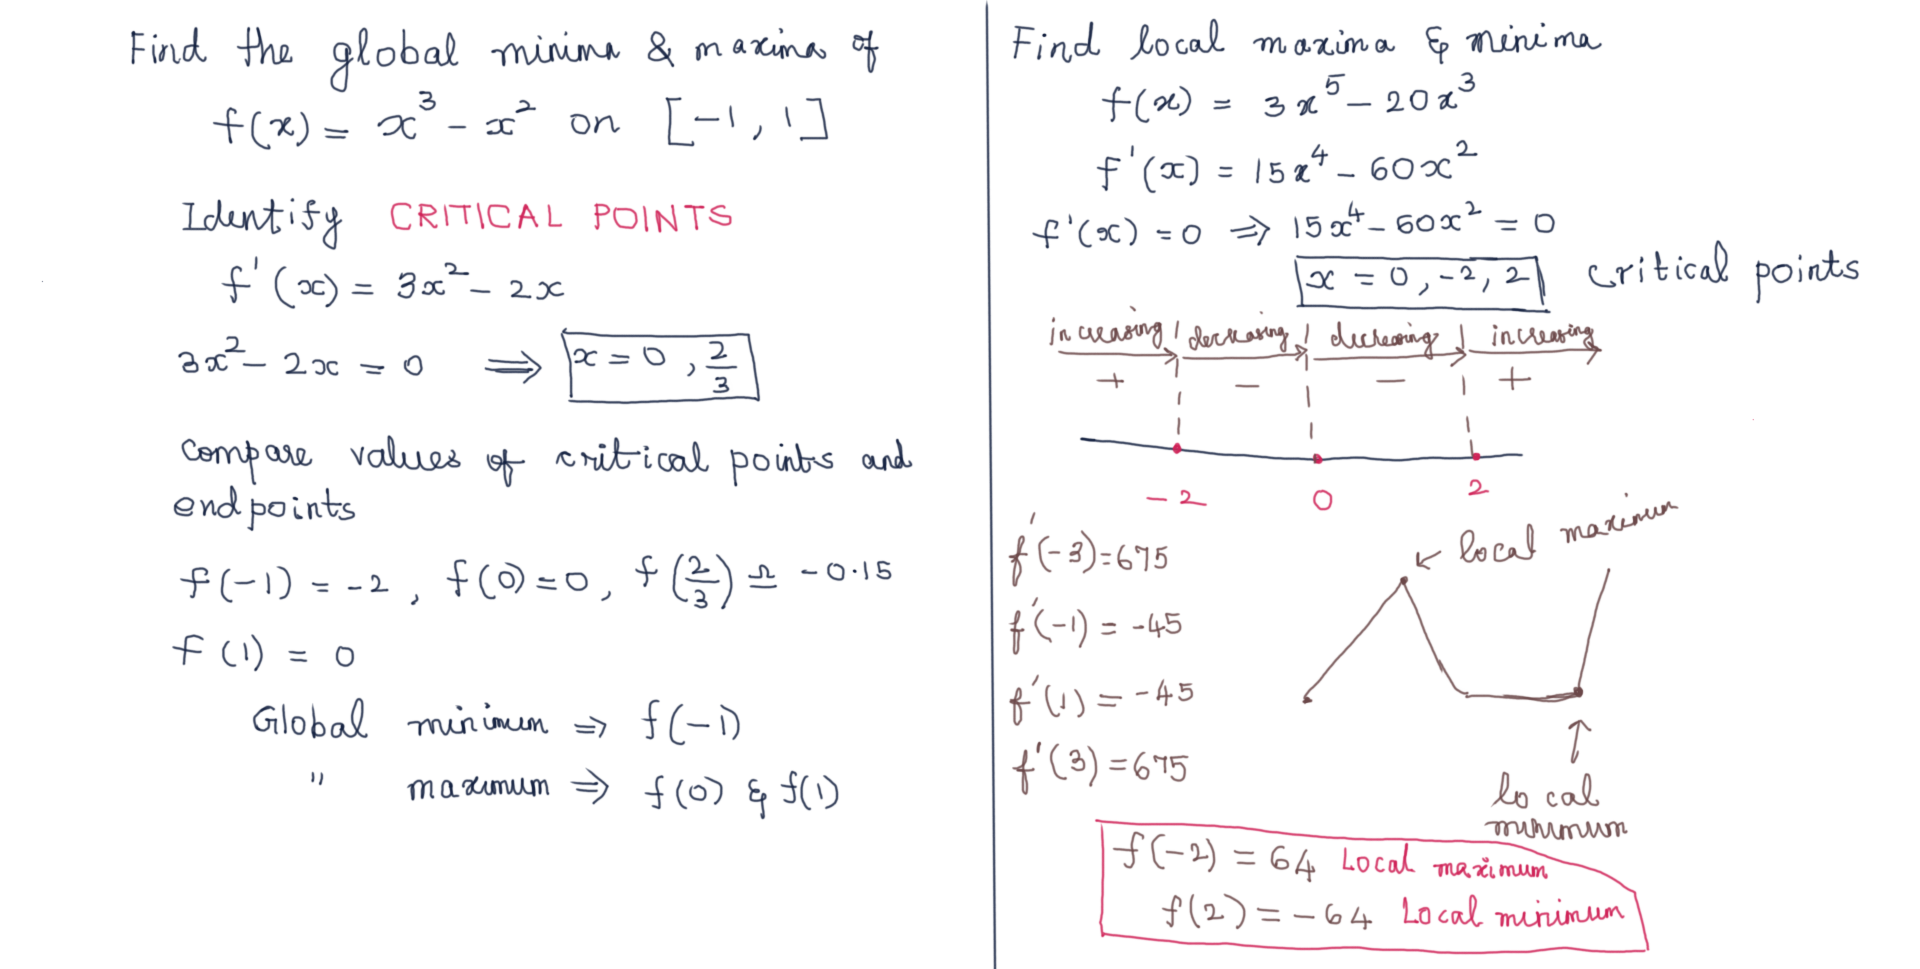 Find the global minima & maxima of
f(x) = x³ - x² on [-1, 1]
Identify CRITICAL POINTS
f'(x) = 3x² - 2x
3x² - 2x = 0 ⟹ x = 0, 2/3
Compare values of critical points and
endpoints
f(-1) = -2, f(0) = 0, f(2/3) ≏ -0.15
f(1) = 0
Global minimum ⇒ f(-1)
" maximum ⇒ f(0) & f(1)
Find local maxima & minima
f(x) = 3x⁵ - 20x³
f'(x) = 15x⁴ - 60x²
f'(x) = 0 ⇒ 15x⁴ - 60x² = 0
x = 0, -2, 2 critical points
increasing decreasing decreasing increasing
+ - - +
-2 0 2
f'(-3) = 675
f'(-1) = -45
f'(1) = -45
f'(3) = 675
local maximum
local
minimum
f(-2) = 64 Local maximum
f(2) = -64 Local minimum